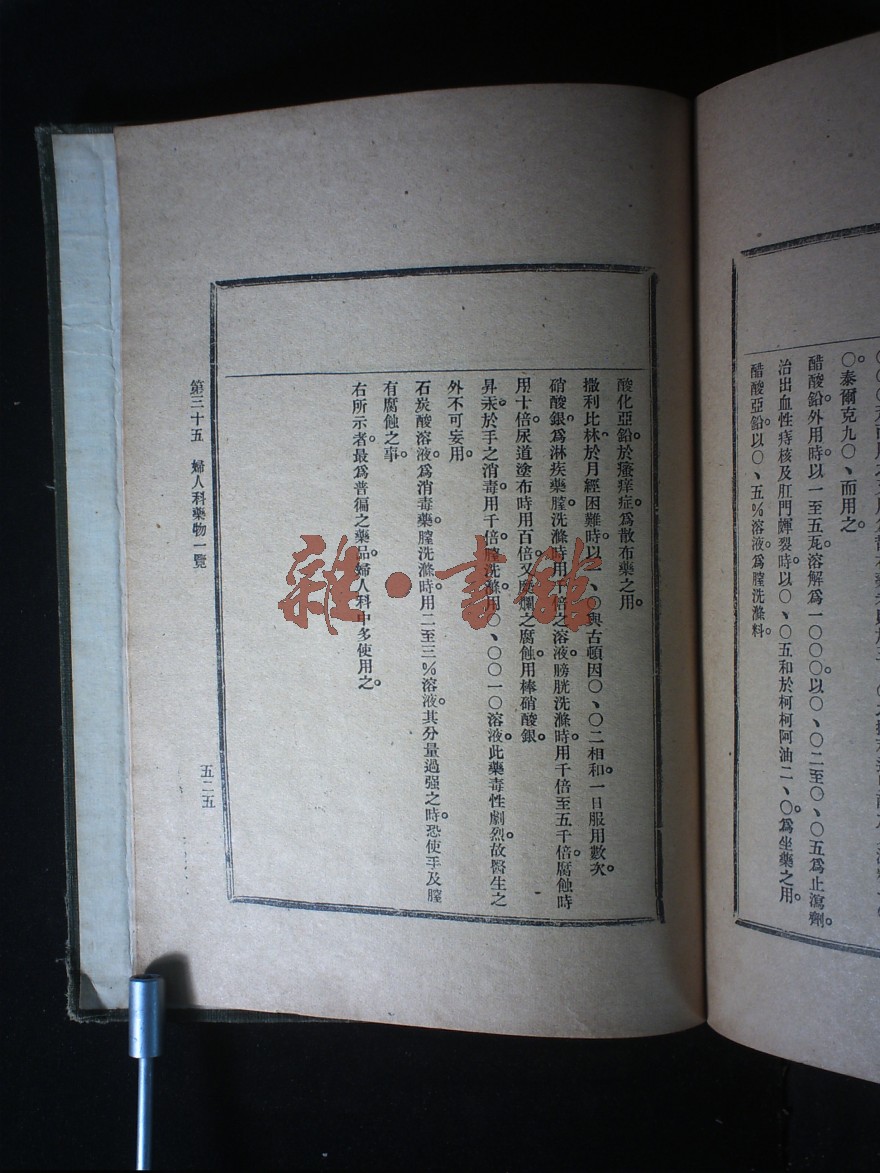 〇泰爾克九〇、而用之。
醋酸鉛外用時以一至五瓦溶解爲一〇〇〇以〇、〇二至〇、〇五爲止瀉劑。
治出血性痔核及肛門皹裂時以〇、〇五和於柯柯阿油二、〇爲坐藥之用。
醋酸亞鉛以〇、五%溶液爲膣洗滌料。
酸化亞鉛於瘙痒症爲散布藥之用。
撒利比林於月經困難時以、〇與古頓因〇、〇二相和一日服用數次。
硝酸銀爲淋疾藥膣洗滌時用倍之溶液膀胱洗滌時用千倍至五千倍腐蝕時
用十倍尿道塗布時用百倍又糜爛之腐蝕用棒硝酸銀。
昇汞於手之消毒用千倍膣洗滌用〇、〇〇一〇溶液此藥毒性劇烈故醫生之
外不可妄用。
石炭酸溶液爲消毒藥膣洗滌時用二至三%溶液其分量過强之時恐使手及膣
有腐蝕之事。
右所示者最爲普徧之藥品婦人科中多使用之。
第三十五 婦人科藥物一覽
五二五
雜·書館